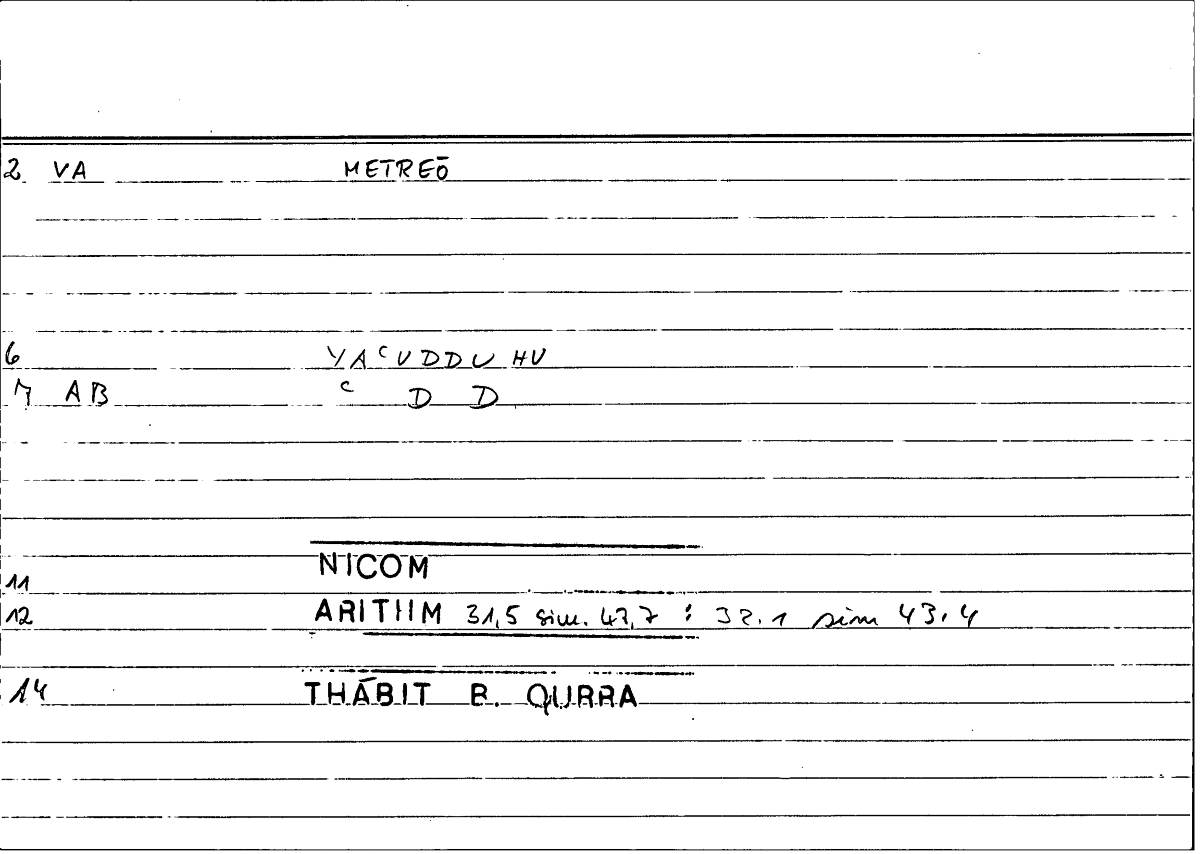 2 VA METREŌ
6 YAᶜUDDUHU
7 AB ᶜ D D
NICOM
11
12 ARITHM 31,5 sim. 43,7 : 32.1 sim 43.4
14 THĀBIT B. QURRA